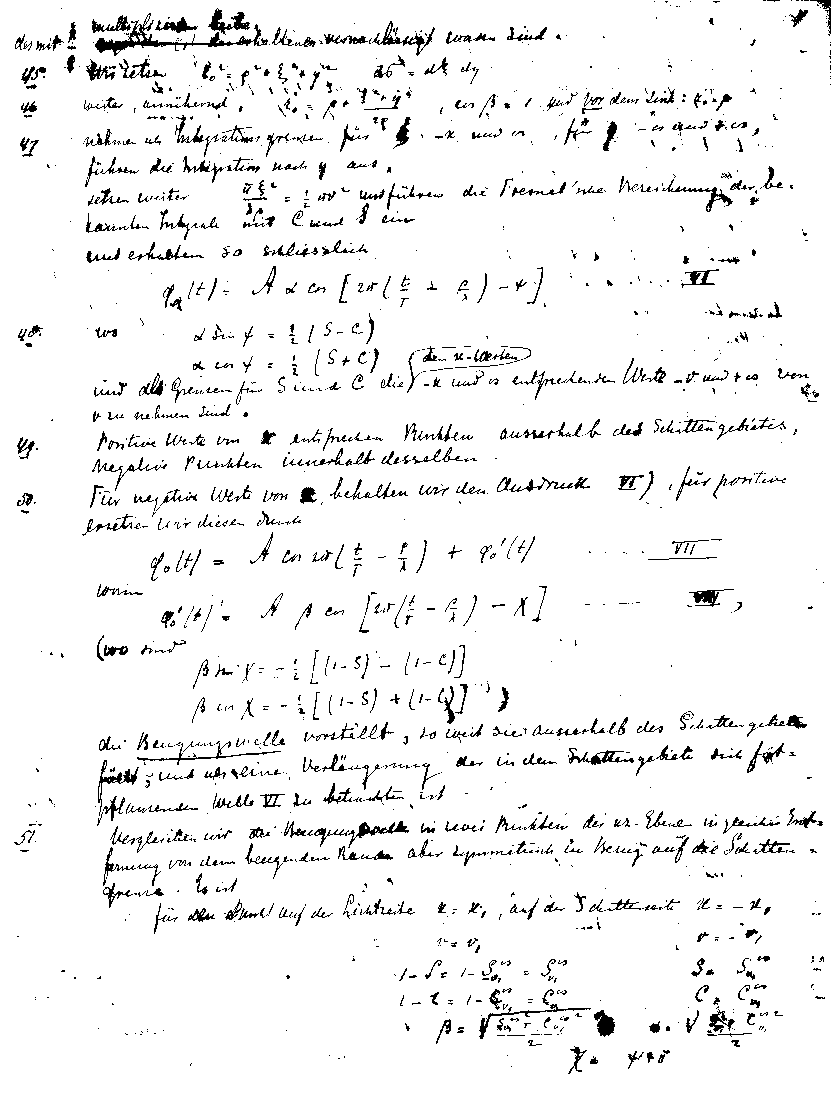 multiplizierten
des mit vernachlässigt worden sind.
45. Wir setzen r₀² = ρ² + ξ² + y² dσ = dξ dy
46 weiter, annähernd, r₀ = ρ + (ξ² + y²)/2ρ, cos β = 1 und vor dem sink: r₀ = ρ
47 nehmen als Integrationsgrenzen für ξ -x und ∞, für y -∞ und +∞,
führen die Integration nach y aus,
setzen weiter = ½ πv² und führen die Fresnel'sche Bezeichnung der be-
kannten Integrale mit C und S ein
und erhalten so schliesslich
φ₀(t) = A α cos [2π(t/T - ρ/λ) - ψ] ..... VI
48. wo α sin ψ = ½ (S - C)
α cos ψ = ½ (S + C) (den x-Werten
und als Grenzen für S und C die -x und ∞ entsprechenden Werte -v und +∞ von
v zu nehmen sind.
49. Positive Werte von x entsprechen Punkten ausserhalb des Schattengebietes,
negative Punkten innerhalb desselben.
50. Für negative Werte von x behalten wir den Ausdruck VI), für positive
ersetzen wir diesen durch
φ₀(t) = A cos 2π(t/T - ρ/λ) + φ₀'(t) ..... VII
worin
φ₀'(t) = A β cos [2π(t/T - ρ/λ) - χ] ..... VIII,
(wo sind
β sin χ = -½ [(1-S) - (1-C)]
β cos χ = -½ [(1-S) + (1-C)] )
die Beugungswelle vorstellt, so weit sie ausserhalb des Schattengebiets
fällt, und als eine Verlängerung der in dem Schattengebiete sich fort-
pflanzenden Welle VI zu betrachten ist.
51. Vergleichen wir die Beugungswelle in zwei Punkten der xz-Ebene in gleicher Ent-
fernung von dem beugenden Rande aber symmetrisch in Bezug auf die Schatten-
grenze. Es ist
für den Punkt auf der Lichtseite x = x₁, auf der Schattenseite x = -x₁
v = v₁ v = -v₁
1 - S = 1 - = S S = S
1 - C = 1 - = C C = C
β = √
χ = ψ + π